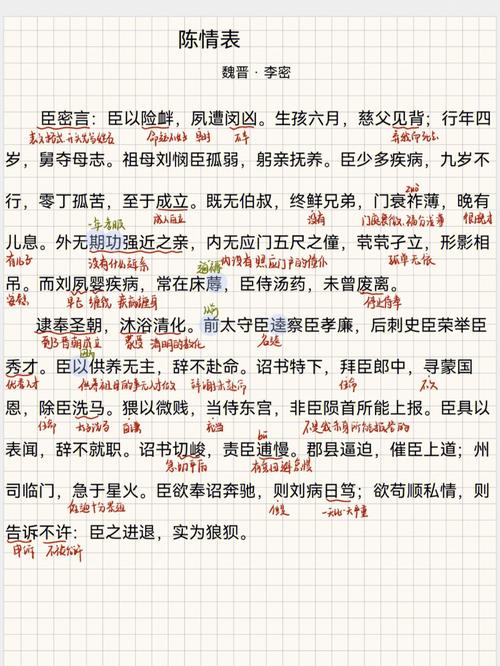 陈情表
魏晋·李密
臣密言：臣以险衅，夙遭闵凶。生孩六月，慈父见背；行年四
命运不好 早时 不幸
岁，舅夺母志。祖母刘悯臣孤弱，躬亲抚养。臣少多疾病，九岁不
行，零丁孤苦，至于成立。既无伯叔，终鲜兄弟，门衰祚薄，晚有
成人自立 没有 很晚才
儿息。外无期功强近之亲，内无应门五尺之僮，茕茕孑立，形影相
有儿子 没有什么亲系 内没有照应门户的僮仆 孤单无依
吊。而刘夙婴疾病，常在床蓐，臣侍汤药，未曾废离。
安慰 早已 缠绕 疾病缠身 停止侍奉
逮奉圣朝，沐浴清化。前太守臣逵察臣孝廉，后刺史臣荣举臣
蒙受 清明的教化 名逵
秀才。臣以供养无主，辞不赴命。诏书特下，拜臣郎中，寻蒙国
优秀人才 任命 不久
恩，除臣洗马。猥以微贱，当侍东宫，非臣陨首所能上报。臣具以
任命 自谦 担当
表闻，辞不就职。诏书切峻，责臣逋慢。郡县逼迫，催臣上道；州
急切严厉
司临门，急于星火。臣欲奉诏奔驰，则刘病日笃；欲苟顺私情，则
一天比一天严重
告诉不许：臣之进退，实为狼狈。
申诉 不被允许